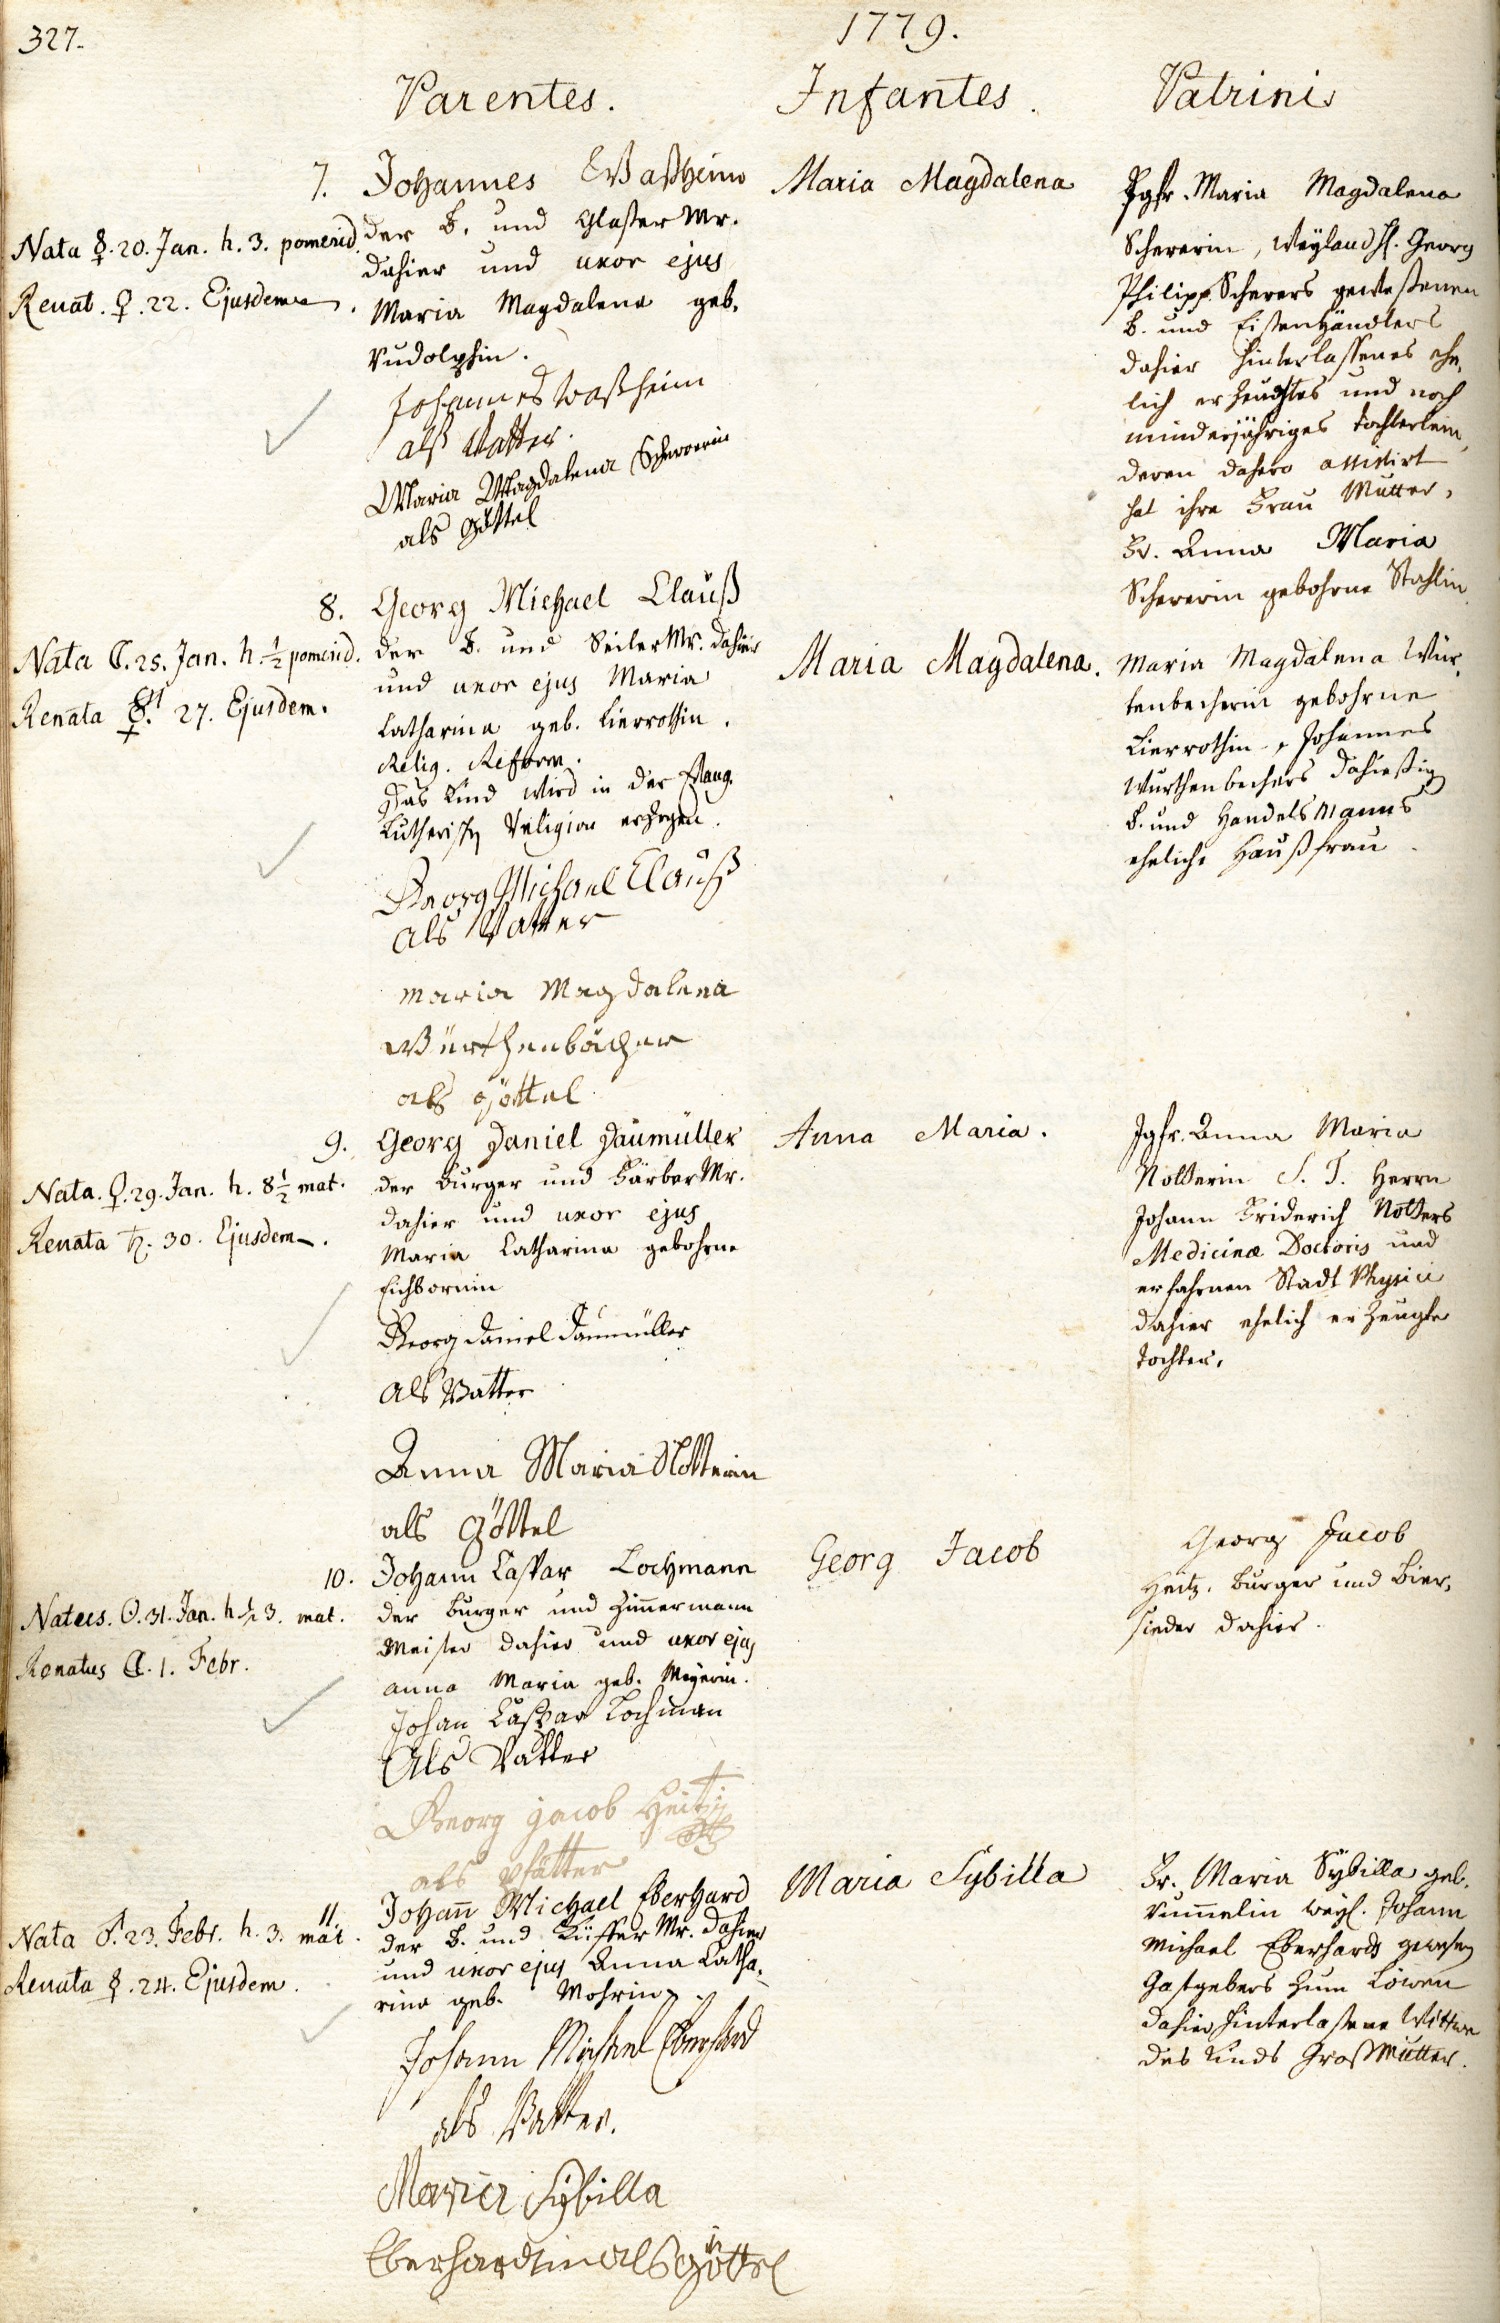 327.
1779.
Parentes.
Infantes.
Patrini
7.
Nata ☿. 20. Jan. h. 3. pomerid.
Renat. ♀. 22. Ejusdem.
Johannes Waßheim
der B. und Glaser Mr.
dahier und uxor ejus
Maria Magdalena geb.
Rudolphin.
Johannes Waßheim
als Vatter.
Maria Magdalena Schererin
als Göttel
Maria Magdalena
Jgfr. Maria Magdalena
Schererin, Weyland H. Georg
Philipp Scherers geweßenen
B. und Eißenhändlers
dahier hinterlassenes ehe,
lich erzeugtes und noch
minderjähriges Töchterlein,
deren dahero assistirt
hat ihre Frau Mutter,
Fr. Anna Maria
Schererin gebohrne Stahlin.
8.
Nata ☾. 25. Jan. h. ½ pomerid.
Renata ☿. 27. Ejusdem.
Georg Michael Clauß
der B. und Seiler Mr. dahier
und uxor ejus Maria
Catharina geb. Lierrothin.
Relig. Reform.
Das Kind wird in der Evang.
Lutherisch Religion erzogen.
Georg Michael Clauß
als Vatter
maria Magdalena
Würthenbächer
als göttel
Maria Magdalena.
Maria Magdalena Wür,
tenbecherin gebohrne
Lierrothin, Johannes
Würthenbechers dahießig
B. und Handelsmanns
eheliche Haußfrau.
9.
Nata. ♀. 29. Jan. h. 8½ mat.
Renata ♄. 30. Ejusdem.
Georg Daniel Daumüller
der Burger und Färber Mr.
dahier und uxor ejus
Maria Catharina gebohrne
Eichbornin
Georg Daniel Daumüller
als Vatter
Anna Maria Nolterin
als Göttel
Anna Maria.
Jgfr. Anna Maria
Nolterin S. T. Herrn
Johann Friderich Nolters
Medicinæ Doctoris und
erfahrnen Stadt Physici
dahier ehelich erzeugte
Tochter.
10.
Natus. ☉. 31. Jan. h. ½ 3. mat.
Renatus ☾. 1. Febr.
Johann Caspar Lochmann
der Burger und Zimmermann
Meister dahier und uxor ejus
anna Maria geb. Meyerin.
Johan Caspar Lochman
Als Vatter
Georg jacob Heitz
als Pfätter
Georg Jacob
Georg Jacob
Heitz, Burger und Bier,
sieder dahier.
11.
Nata ♂. 23. Febr. h. 3. mat.
Renata ☿. 24. Ejusdem.
Johann Michael Eberhard
der B. und Küffer Mr. dahier
und uxor ejus Anna Catha,
rina geb. Mohrin.
Johann Michael Eberhard
als Vatter.
Maria Sybilla
Eberhardtin als göttel
Maria Sybilla
Fr. Maria Sybilla geb.
Rummelin weyl. Johann
Michael Eberhards gewesen
Gastgebers zum Löwen
dahier hinterlaßene Wittwe
des Kinds Großmutter.